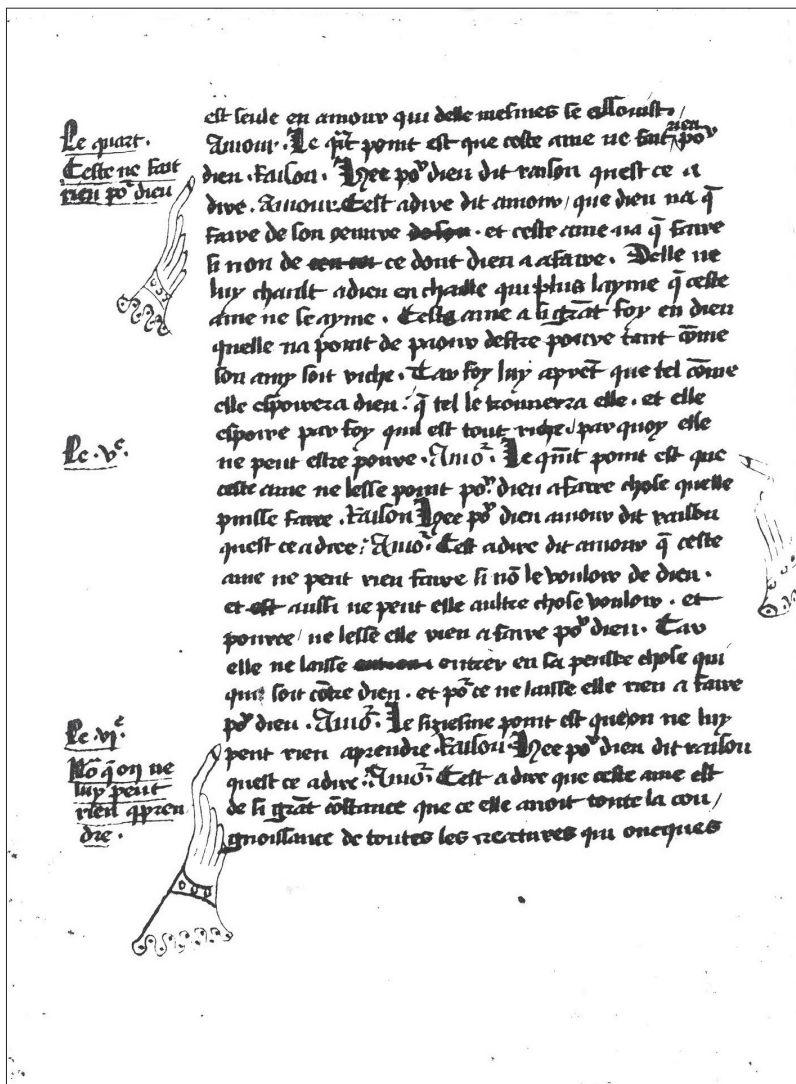 est seule en amour qui delle mesmes se esIouist./
Le quart.
Ceste ne fait
rien po² dieu
Amour. Le qrt point est que ceste ame ne fait rien po²
dieu. Raison. Hee po² dieu dit raison quest ce a
dire. Amour. Cest adire dit amour / que dieu na q̄
faire de son oeuure de son. et ceste ame na q̄ faire
si non de ce dont dieu a afaire. Delle ne
luy chault a dieu en chaille qui plus layme q̄ ceste
ame ne se ayme. Ceste ame a si grāt foy en dieu
quelle na point de paour destre poure tant cōme
son amy soit riche. Car foy luy aprēt que tel cōme
elle espoirera dieu: q̄ tel le trouuerra elle. et elle
espoire par foy quil est tout riche / par quoy elle
Le .vᵉ.
ne peut estre poure. Amo². Le quīt point est que
ceste ame ne lesse point po² dieu afaire chose quelle
puisse faire. Raison Hee po² dieu amour dit raison
quest ce adire: Amo². Cest adire dit amour q̄ ceste
ame ne peut rien faire si nō le vouloir de dieu.
et est aussi ne peut elle aultre chose vouloir. et
pource / ne lesse elle rien afaire po² dieu. Car
elle ne laisse entrer en sa pensee chose qui
qui soit cōtre dieu. et po² ce ne laisse elle rien a faire
Le .vjᵉ.
Nō q̄ on ne
luy peut
rien appren
dre.
po² dieu. Amo². Le siziesme point est queon ne luy
peut rien aprendre. Raison. Hee po² dieu dit raison
quest ce adire: Amo². Cest adire que ceste ame est
de si grāt cōstance que ce elle auoit toute la cou/
gnoissance de toutes les creatures qui oncques